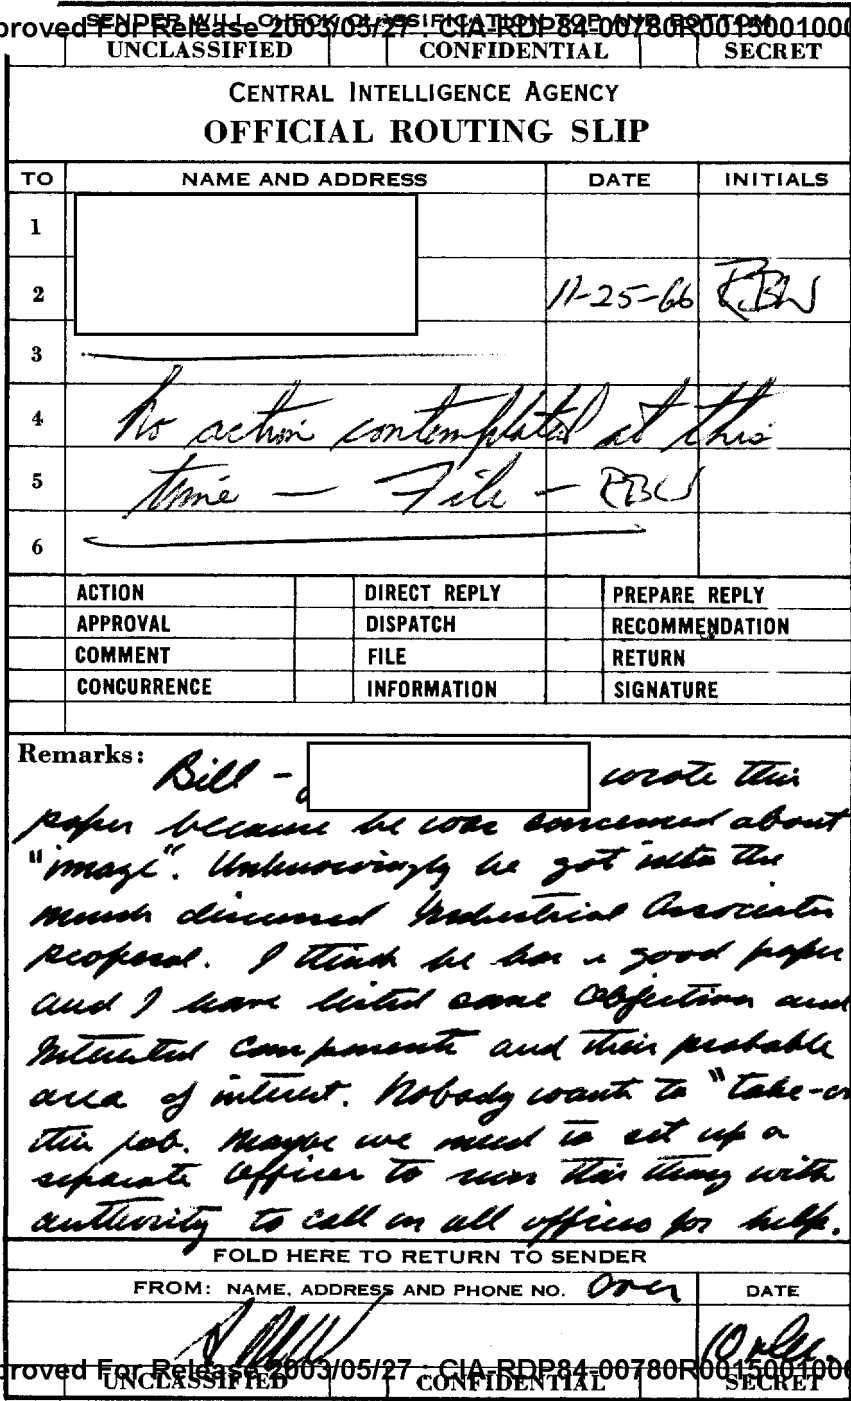 SENDER WILL CHECK CLASSIFICATION TOP AND BOTTOM
proved For Release 2003/05/27 : CIA-RDP84-00780R001500100
UNCLASSIFIED CONFIDENTIAL SECRET
CENTRAL INTELLIGENCE AGENCY
OFFICIAL ROUTING SLIP
TO NAME AND ADDRESS DATE INITIALS
1
2 11-25-66 RBW
3
4 No action contemplated at this
5 time — File — RBW
6
ACTION DIRECT REPLY PREPARE REPLY
APPROVAL DISPATCH RECOMMENDATION
COMMENT FILE RETURN
CONCURRENCE INFORMATION SIGNATURE
Remarks:
Bill - wrote this
paper because he was concerned about
"image". Unknowingly he got into the
much discussed Industrial Associates
proposal. I think he has a good paper
and I have listed some objections and
interested components and their probable
area of interest. Nobody wants to "take-on
this job. Maybe we need to set up a
separate officer to run this thing with
authority to call on all offices for help.
FOLD HERE TO RETURN TO SENDER
FROM: NAME, ADDRESS AND PHONE NO. Over DATE
proved For Release 2003/05/27 : CIA-RDP84-00780R001500100
UNCLASSIFIED CONFIDENTIAL SECRET